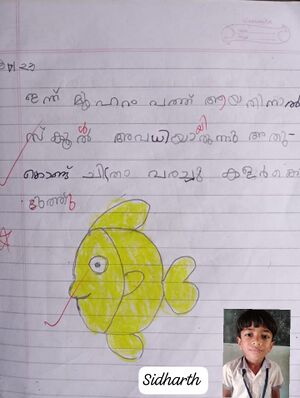 ഇന്ന് മുഹറം പത്ത് ആയതിനാൽ
സ്കൂൾ അവധിയായിരുന്നു അതു-
കൊണ്ട് ചിത്രം വരച്ചു കളർക്കൊ
ടുത്തു
Sidharth